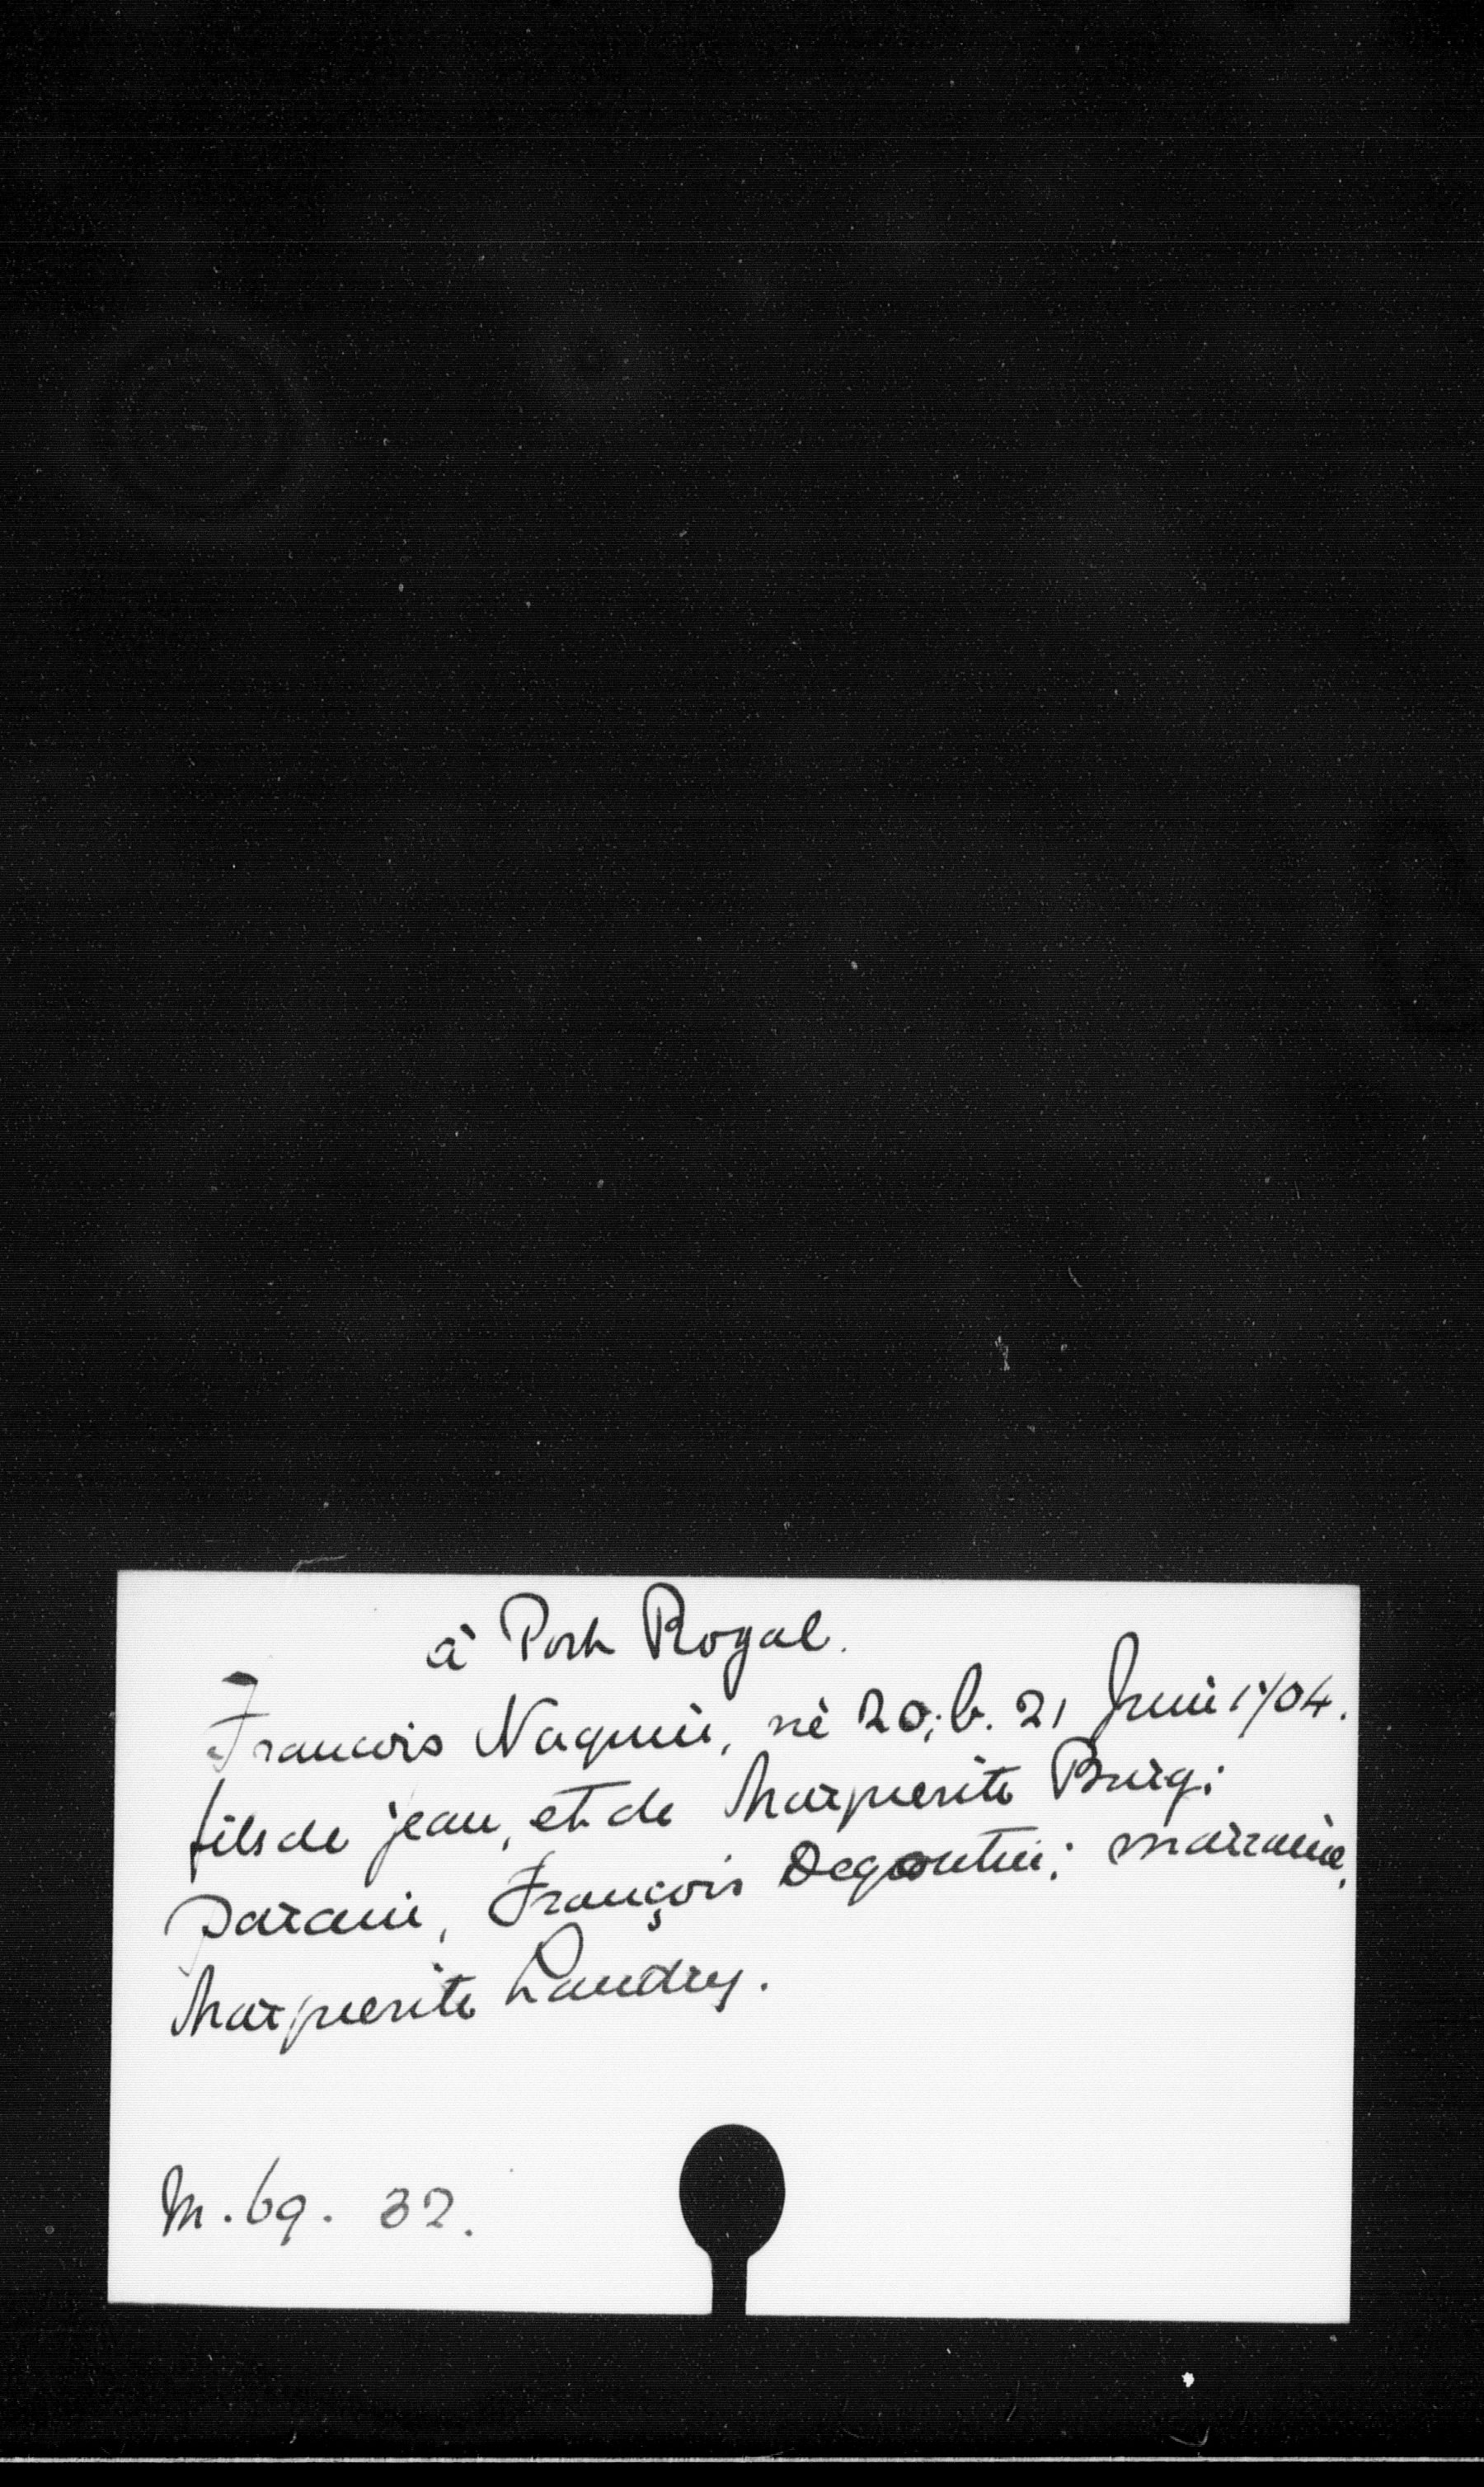 à Port Royal.
Francois Naquin, né 20; b. 21 Juin 1704.
fils de jean, et de Marguerite Burg;
Parain, François Degoutin; marraine,
Marguerite Landry.
M. 69. 32.